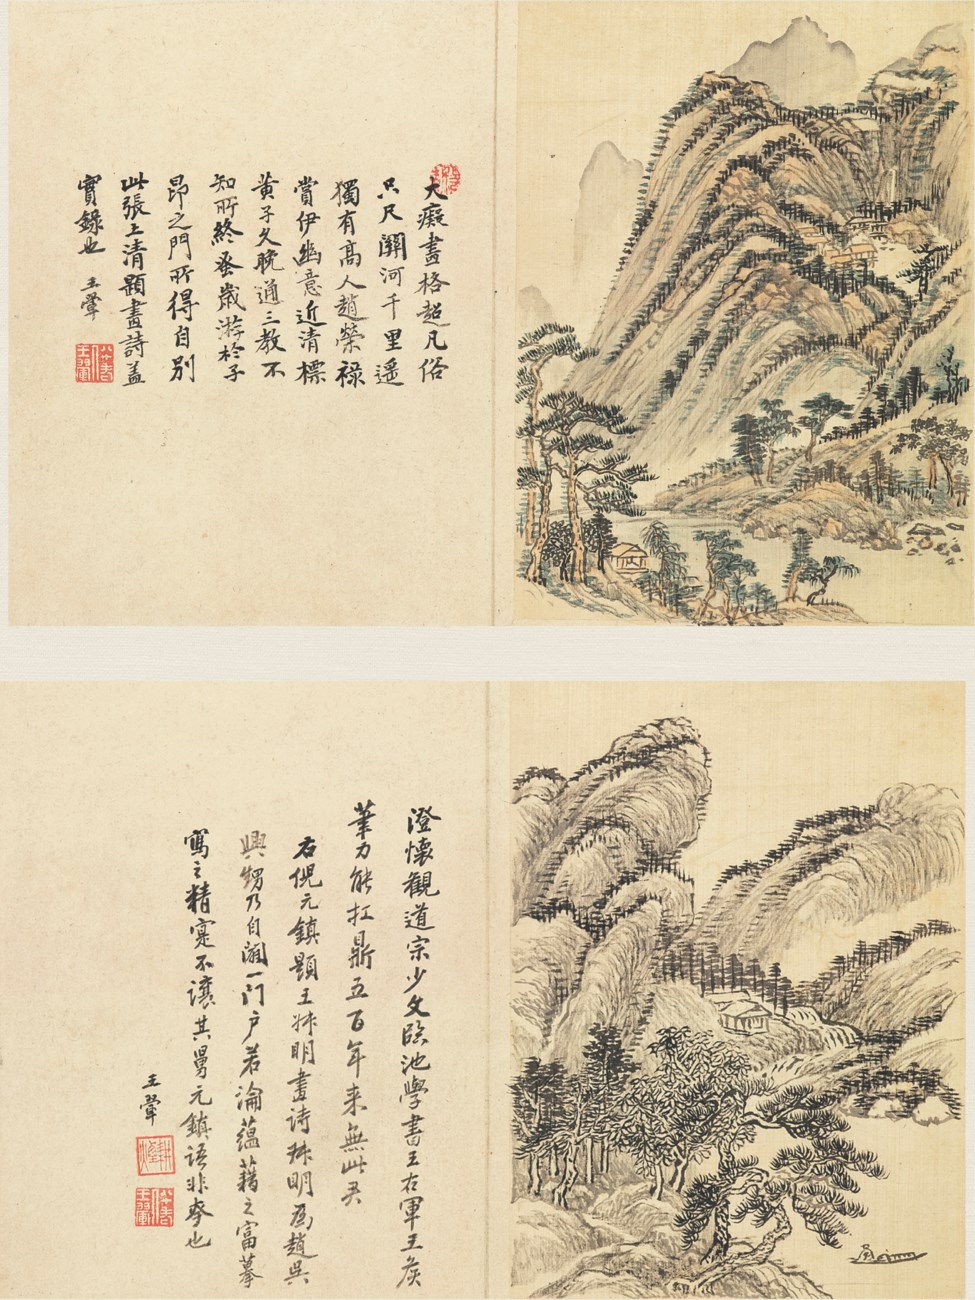 大癡畫格超凡俗
只尺關河千里遥
獨有髙人趙榮祿
賞伊幽意近清標
黄子久晚通三教不
知所終蚤嵗游於子
昻之門所得自别
此張上清題畫詩盖
實錄也
王翬
澄懷觀道宗少文臨池學書王右軍王矦
筆力能扛鼎五百年来無此君
右倪元鎮題王叔明畫詩叔明爲趙吳
興甥乃自闢一门户若論蕴藉之富摹
寫之精寔不讓其舅元鎮語非夸也
王翬